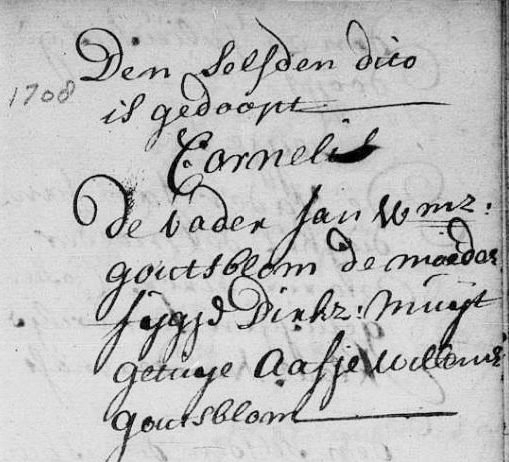 Den selfden dito
1708
is gedoopt
Cornelis
de vader Jan Wmz:
goutsblom de moeder
Dirkz: Muijt
getuije Aafje Willems
goutsblom